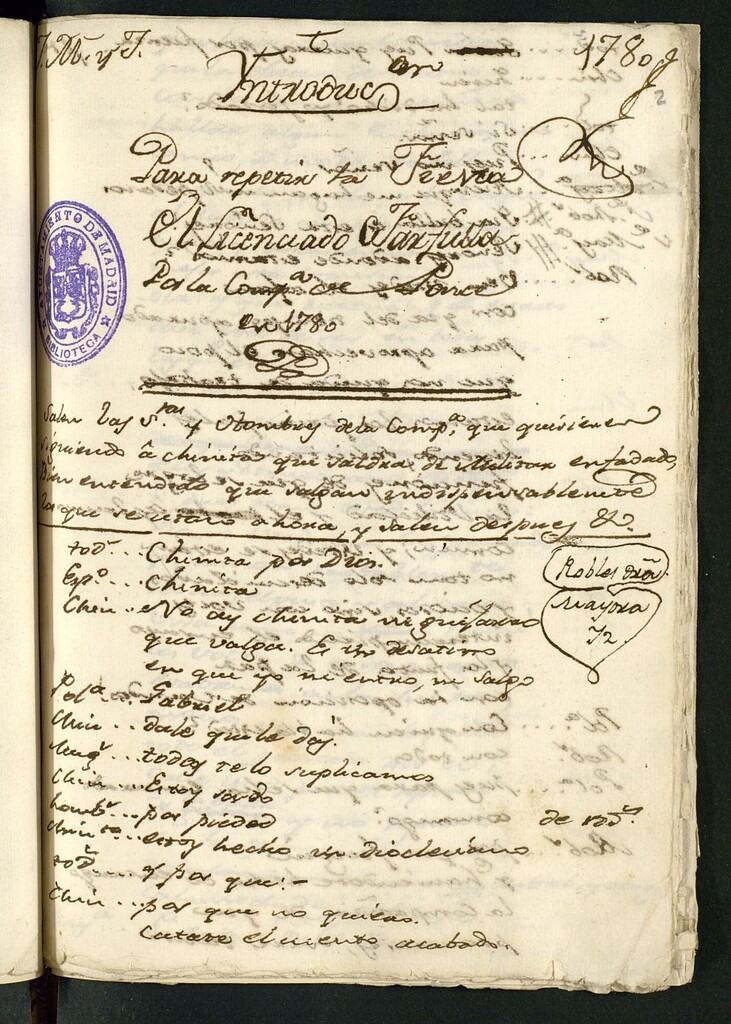 J. M. y J.
1780
2
Introducon
Para repetir la Fiesta
El Licenciado Farfulla
Por la Compa. de Ponce
en 1780
AYUNTAMIENTO DE MADRID
BIBLIOTECA
Salen las Sras. y Hombres de la Compa. que quisieren
siguiendo â chinita que saldra de Militar enfadado,
Bien entendido que salgan indispensablemte
los que se citaro ahora, y salen despues &c.
tods... Chinita por Dios.
Espo... Chinita
Chin... No ay chinita ni
que valga. Es un desatino
en que yo ni entro, ni salgo
Robles
Mayora
72
Pola... Gabriel
Chin... dale que le das.
Mugs... todas te lo suplicamos
Chin... Estoy sordo
homb... por piedad
de rods.
Chinta... estoy hecho un Diocleciano
tods... y por que?
Chin... por que no quiero.
Catate el cuento acabado.